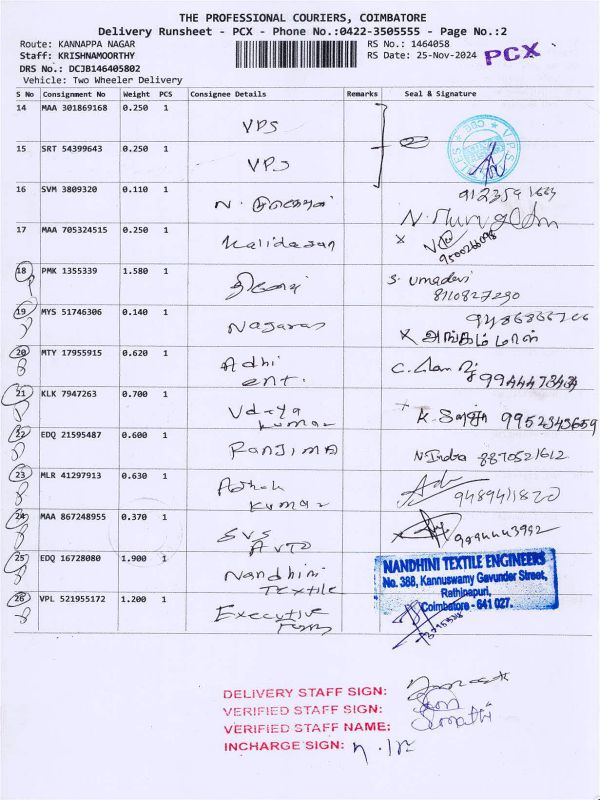 THE PROFESSIONAL COURIERS, COIMBATORE
Delivery Runsheet - PCX - Phone No.:0422-3505555 - Page No.:2
Route: KANNAPPA NAGAR
RS No.: 1464058
PCX
Staff: KRISHNAMOORTHY
RS Date: 25-Nov-2024
DRS No.: DCJB146405802
Vehicle: Two Wheeler Delivery
S No Consignment No Weight PCS Consignee Details Remarks Seal & Signature
14 MAA 301869168 0.250 1 VPS
15 SRT 54399643 0.250 1 VPS
16 SVM 3809320 0.110 1 N.
17 MAA 705324515 0.250 1 Kalidasan X 9500266098
18 PMK 1355339 1.580 1 S. Umadevi
8110827290
19 MYS 51746306 0.140 1 Nagaraj
X அங்கம்மாள்
20 MTY 17955915 0.620 1 Adhi
ent.
21 KLK 7947263 0.700 1 Udaya
Kumar
9952343659
22 EDQ 21595487 0.600 1 RANJIMA N Indra 8870521612
23 MLR 41297913 0.630 1 Ashok
Kumar
9489411820
24 MAA 867248955 0.370 1 SVS
AUTO
9994443992
25 EDQ 16728080 1.900 1 Nandhini
Textile
NANDHINI TEXTILE ENGINEERS
No. 388, Kannuswamy Gavunder Street,
Rathinapuri,
Coimbatore - 641 027.
26 VPL 521955172 1.200 1 Executive
DELIVERY STAFF SIGN:
VERIFIED STAFF SIGN:
VERIFIED STAFF NAME: Sumathi
INCHARGE SIGN: